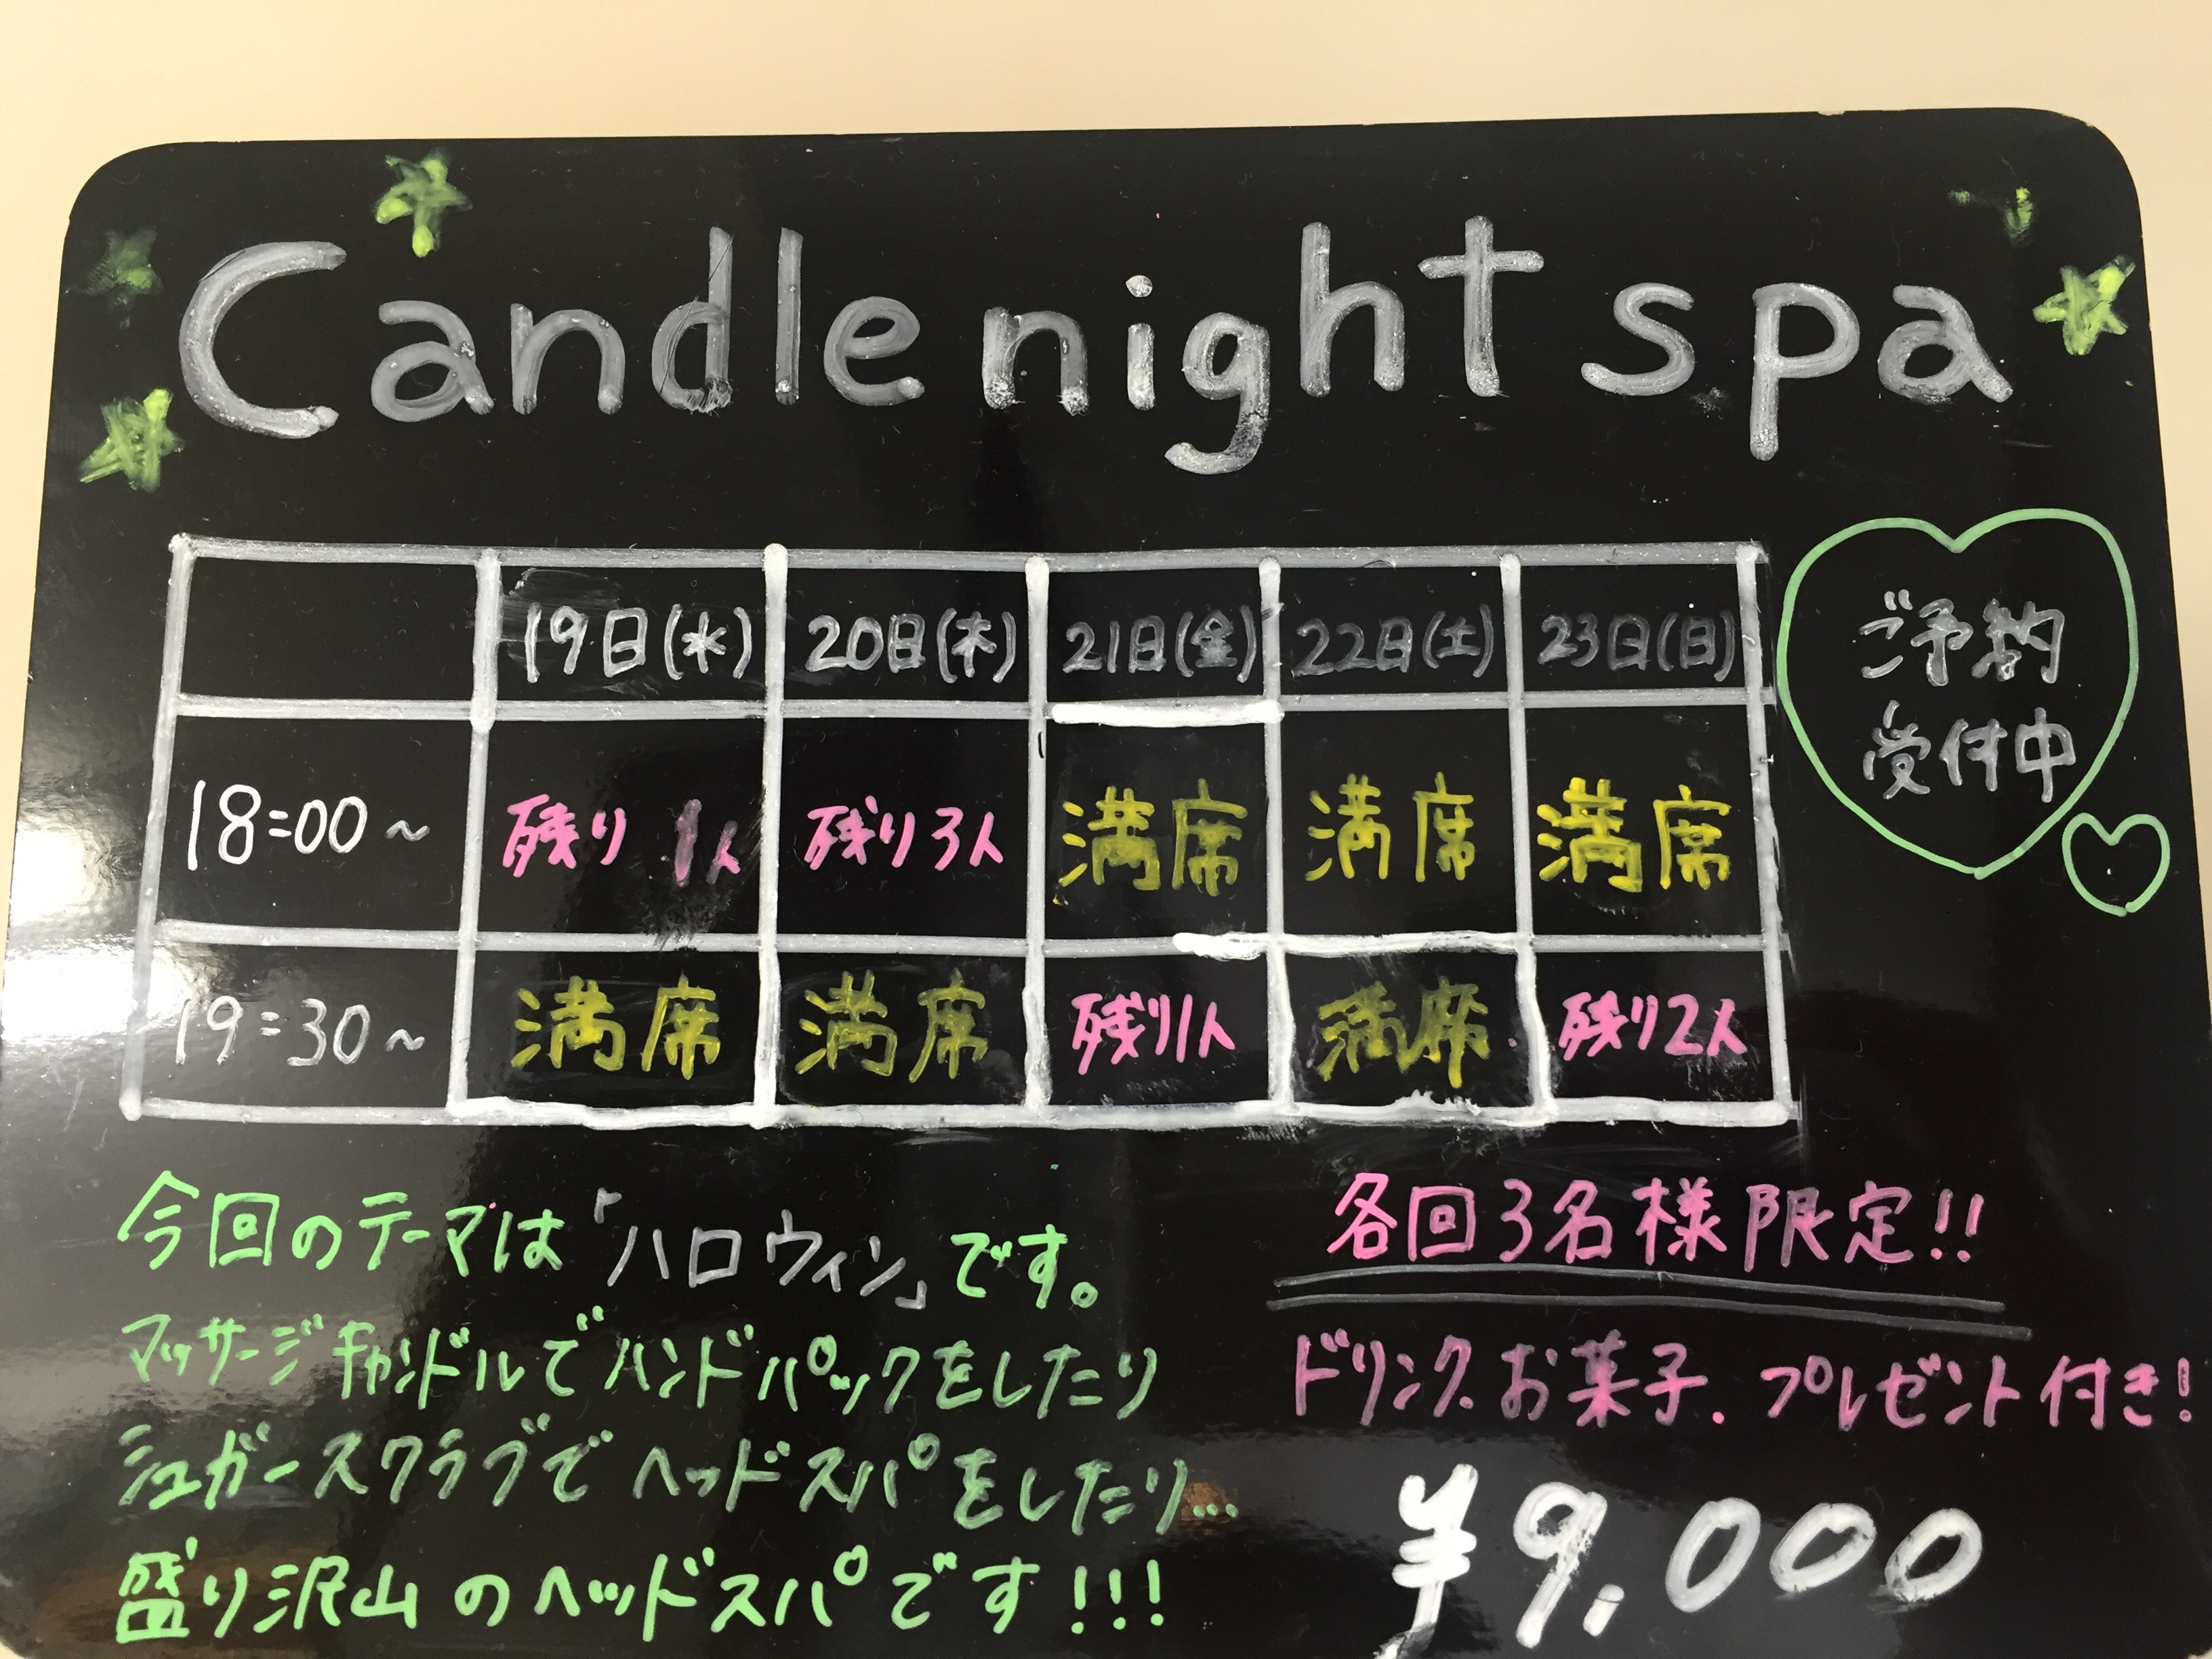 Candle night spa
19日(水) 20日(木) 21日(金) 22日(土) 23日(日)
ご予約
受付中
18:00~ 残り 1人 残り3人 満席 満席 満席
19:30~ 満席 満席 残り1人 満席 残り2人
今回のテーマは「ハロウィン」です。
マッサージキャンドルでハンドパックをしたり
シュガースクラブでヘッドスパをしたり…
盛り沢山のヘッドスパです!!!
各回3名様限定!!
ドリンク.お菓子.プレゼント付き!
¥9,000